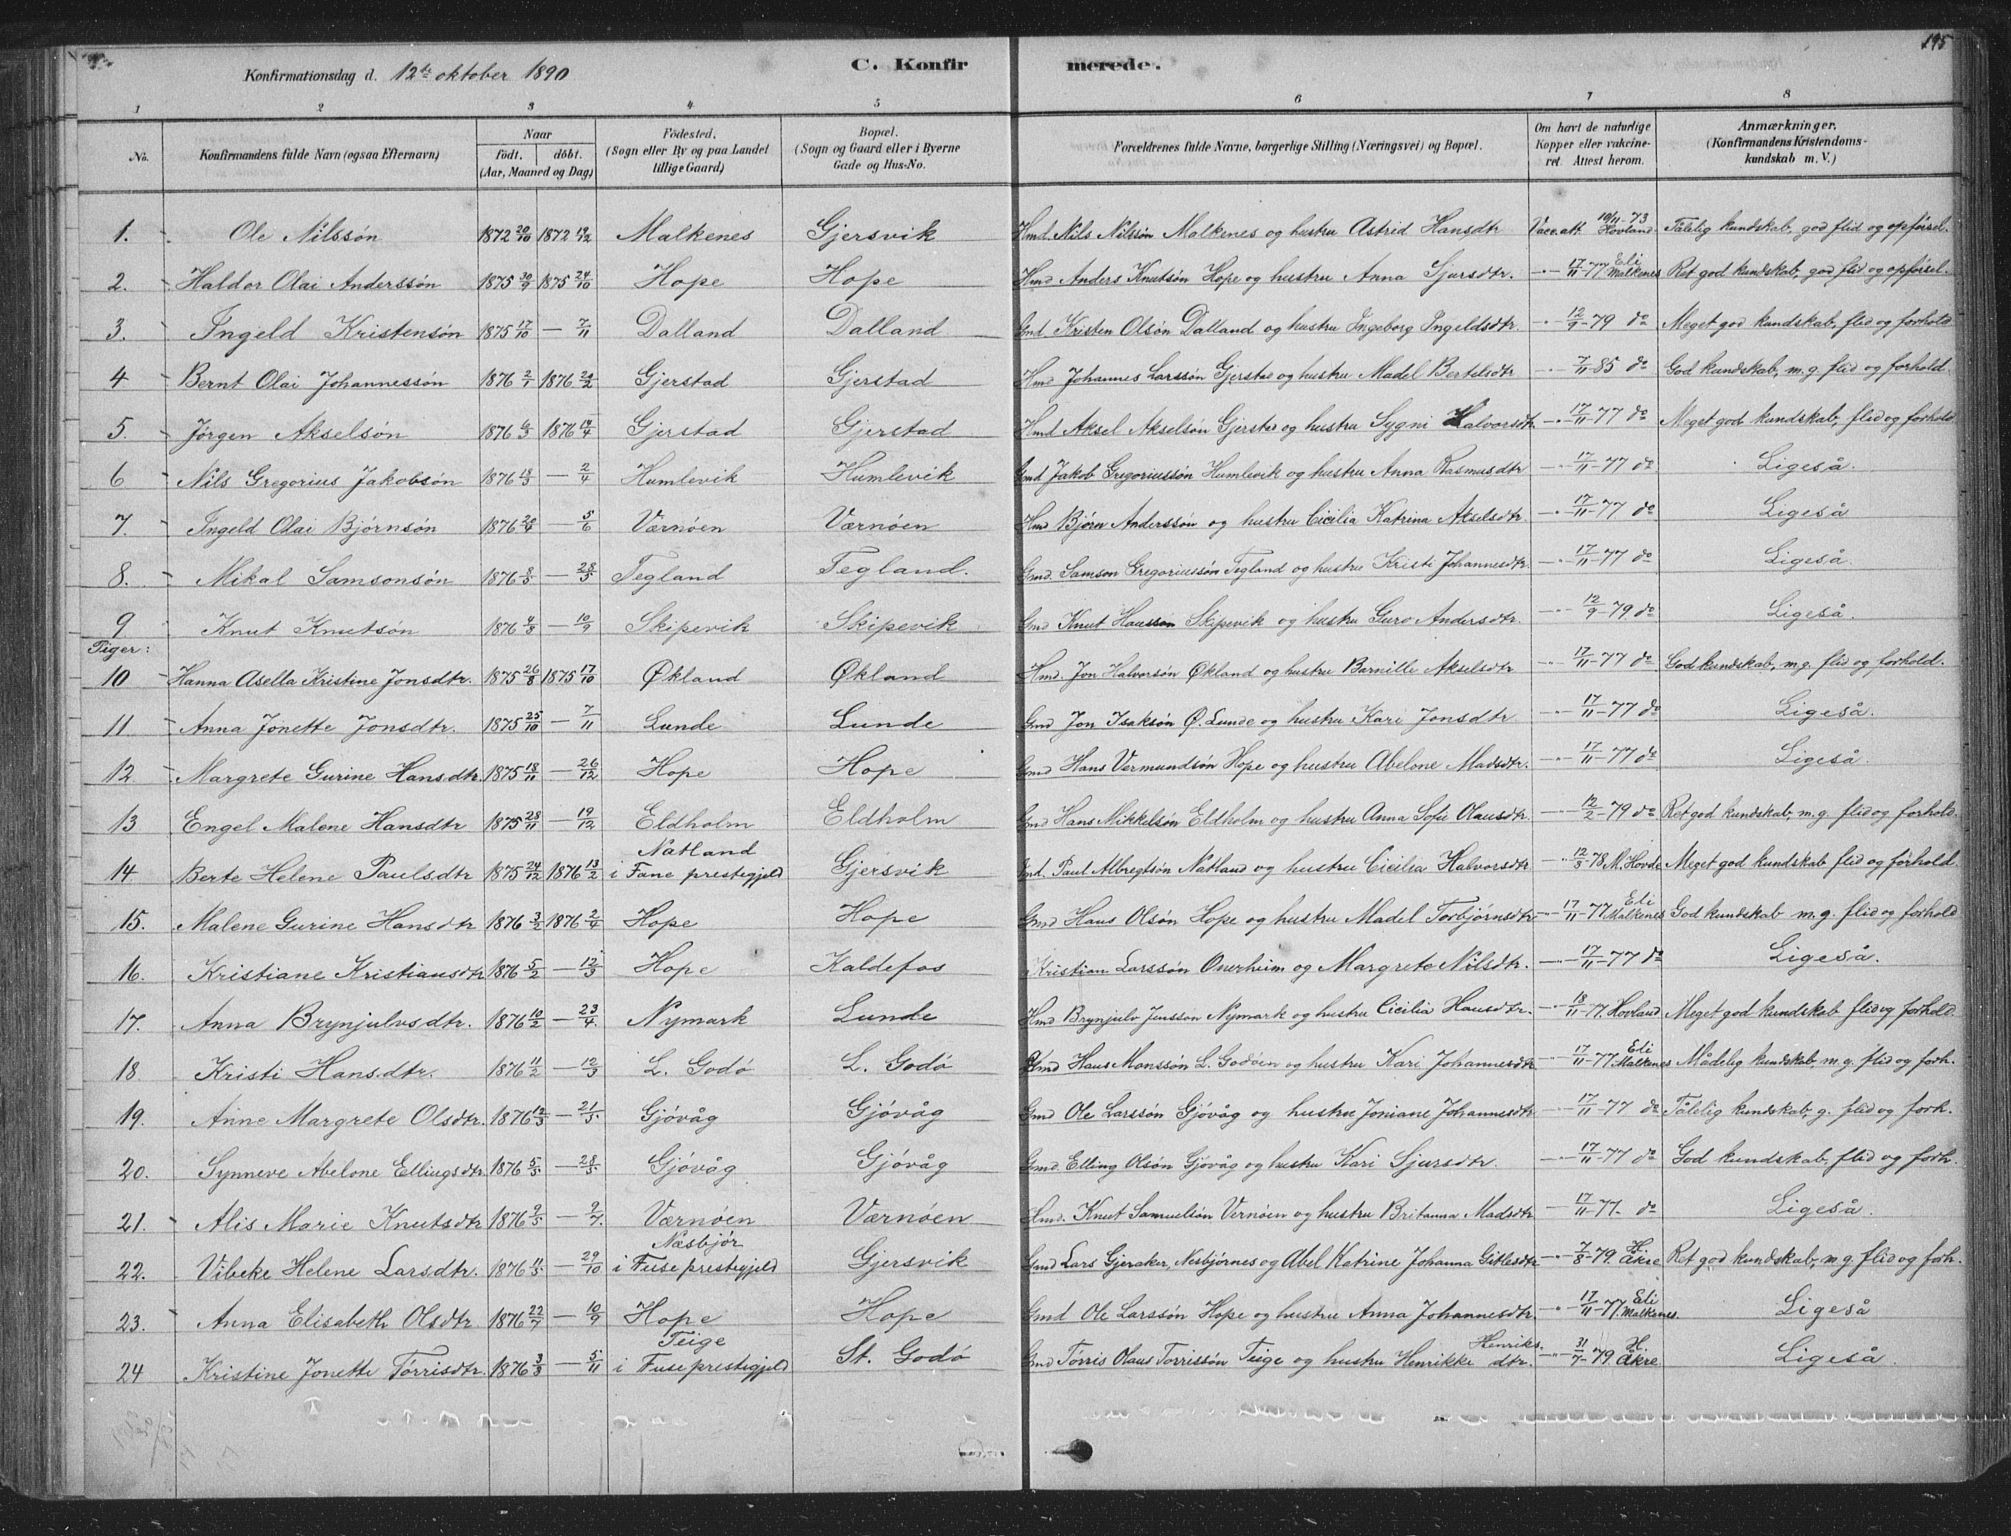 195
Konfirmationsdag d. 12te oktober 1890 C. Konfirmerede.
1 2 3 4 5 6 7 8
No. Konfirmandens fulde Navn (ogsaa Efternavn) Naar født, døbt. (Aar, Maaned og Dag) Fødested. (Sogn eller By og paa Landet tillige Gaard) Bopæl. (Sogn og Gaard eller i Byerne Gade og Hus-No. Forældrenes fulde Navne, borgerlige Stilling (Næringsvei) og Bopæl. Om havt de naturlige Kopper eller vakcineret. Attest herom. Anmærkninger. (Konfirmandens Kristendomskundskab m. V.)
1. Ole Nilssøn 1872 20/10 1872 19/12 Malkenes Gjersvik Hmd. Nils Nilssøn Malkenes og hustru Astrid Hansdtr Vacc. att. 10/11-73 Hovland Tålelig kundskab, god flid og opførsel.
2. Haldor Olai Anderssøn 1875 30/9 1875 24/10 Hope Hope Hmd Anders Knutsøn Hope og hustru Anna Sjursdtr. 17/11-77 Eli Malkenes Ret god kundskab, god flid og opførsel.
3. Ingeld Kristensøn 1875 17/10 — 7/11 Dalland Dalland Gmd. Kristen Olsøn Dalland og hustru Ingeborg Ingeldsdtr. 12/9-79 do Meget god kundskab, flid og forhold
4 Bernt Olai Johannessøn 1876 2/1 1876 20/2 Gjerstad Gjerstad Hmd Johannes Larssøn Gjerstad og hustru Madel Bertelsdtr 7/11-85 do God kundskab, m.g. flid og forhold.
5. Jørgen Akselsøn 1876 6/3 1876 17/4 Gjerstad Gjerstad Hmd Aksel Akselsøn Gjerstad og hustru Sygni Halvorsdtr 17/11-77 do Meget god kundskab, flid og forhold
6 Nils Gregorius Jakobsøn 1876 18/3 — 2/4 Humlevik Humlevik Gmd Jakob Gregoriussøn Humlevik og hustru Anna Rasmusdtr 17/11-77 do Ligeså.
7. Ingeld Olai Bjørnsøn 1876 20/4 — 5/6 Værnøen Værnøen Hmd Bjørn Anderssøn og hustru Cicilia Katrina Akselsdtr. 17/11-77 do Ligeså
8. Mikal Samsonsøn 1876 8/5 — 28/5 Tegland Tegland. Gmd. Samson Gregoriussøn Tegland og hustru Kristi Johannesdtr. 17/11-77 do Ligeså.
9 Knut Knutsøn 1876 4/8 — 10/9 Skipevik Skipevik Gmd Knut Hanssøn Skipevik og hustru Guro Andersdtr. 12/9-79 do Ligeså.
Piger:
10 Hanna Asella Kristine Jonsdtr. 1875 26/8 1875 17/10 Økland Økland Hmd. Jon Halvorsøn Økland og hustru Barnille Akselsdtr 17/11-77 do God kundskab, m.g. flid og forhold.
11 Anna Jonette Jonsdtr. 1875 25/10 — 7/11 Lunde Lunde Gmd Jon Isaksøn Ø. Lunde og hustru Kari Jonsdtr 17/11-77 do Ligeså.
12 Margrete Gurine Hansdtr. 1875 18/11 — 26/12 Hope Hope Gmd Hans Vermundsøn Hope og hustru Abelone Madsdtr. 17/11-77 do Ligeså.
13 Engel Malene Hansdtr 1875 28/11 — 19/12 Eldholm Eldholm Gmd Hans Mikkelsøn Eldholm og hustru Anna Sofie Olausdtr. 12/2-79 do Ret god kundskab, m.g. flid og forhold.
14. Berte Helene Paulsdtr 1875 24/12 1876 13/2 Natland i Fane prestegjeld Gjersvik Ind. Paul Albregtsøn Natland og hustru Cicilia Halvorsdtr. 12/3-78 M. Hovde Meget god kundskab flid og forhold.
15. Malene Gurine Hansdtr 1876 3/2 1876 2/4 Hope Hope Gmd Hans Olsøn Hope og hustru Madel Torbjørnsdtr 17/11-77 Eli Malkenes God kundskab m.g. flid og forhold
16. Kristiane Kristiansdtr 1876 5/2 — 12/3 Hope Kaldefos Kristian Larssøn Onerheim og Margrete Nilsdtr. 17/11-77 do Ligeså.
17. Anna Brynjulvsdtr. 1876 10/2 — 23/4 Nymark Lunde Hmd Brynjulv Jenssøn Nymark og hustru Cicilia Hansdtr. 18/11-77. Hovland Meget god kundskab flid og forhold.
18 Kristi Hansdtr. 1876 11/2 — 12/3 L. Godø L. Godø Gmd Hans Monssøn L. Godøen og hustru Kari Johannesdtr 17/11-77 Eli Malkenes Mådelig kundskab, m.g. flid og forh.
19. Anne Margrete Olsdtr. 1876 12/3 — 21/5 Gjøvåg Gjøvåg Gmd Ole Larssøn Gjøvåg og hustru Joniane Johannesdtr 17/11-77 do Tålelig kundskab, g. flid og forh.
20. Synneve Abelone Ellingsdtr 1876 5/5 — 28/5 Gjøvåg Gjøvåg Gmd. Elling Olsøn Gjøvåg og hustru Kari Sjursdtr. 17/11-77 do God kundskab, flid og forh.
21. Alis Marie Knutsdtr 1876 9/5 — 9/7. Værnøen Værnøen Hmd. Knut Samuelsøn Vernøen og hustru Britanna Madsdtr 17/11-77. do Ligeså.
22. Vibeke Helene Larsdtr. 1876 11/5 — 29/10 Næsbjør i Fuse prestegjeld Gjersvik Gmd Lars Gjeraker, Nesbjørnes og Abel Katrine Johanna Gitlesdtr 7/8-79. H. Åkre Ret god kundskab, m.g. flid og forh.
23. Anna Elisabeth Olsdtr 1876 22/7 — 10/9 Hope Hope Gmd Ole Larssøn Hope og hustru Anna Johannesdtr 17/11-77 Eli Malkenes. Ligeså
24 Kristine Jonette Tørrisdtr. 1876 3/8 — 5/11 Teige i Fuse prestegjeld St. Godø Gmd Tørris Olaus Torrissøn Teige og hustru Henrikke Henriksdtr. 31/7-79 H. Åkre Ligeså